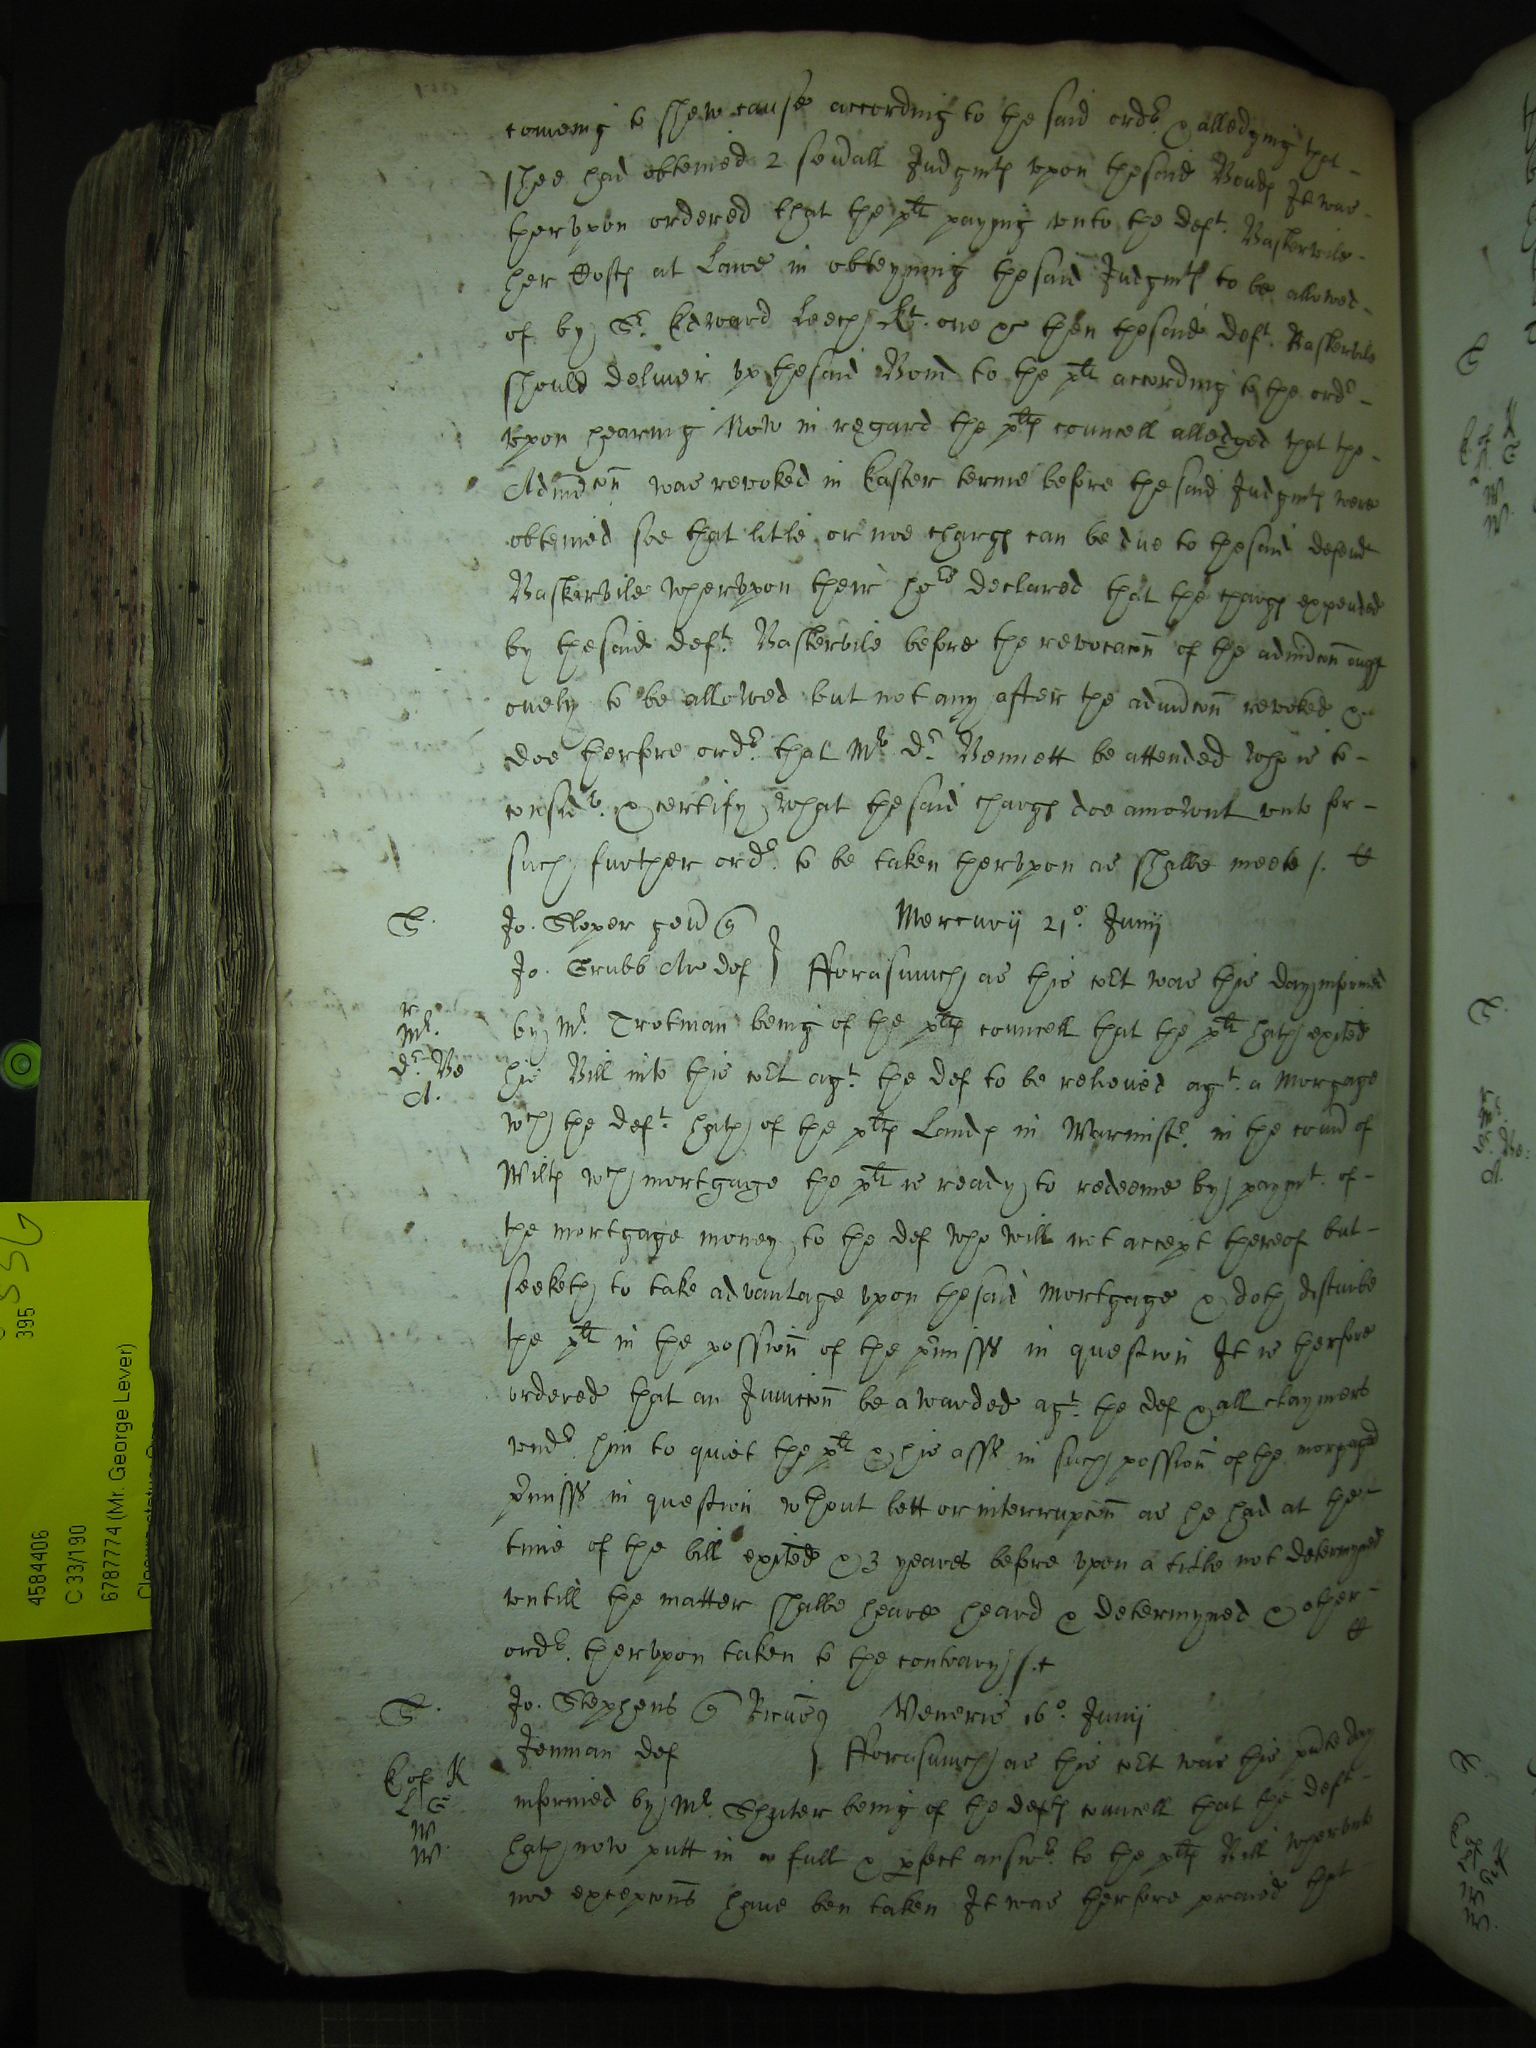 comeing to shew cause according to the said ordr. & alledging that
shee had obteined 2 seuall Judgmts vpon the said Bonds It was
thervpon ordered that the plt paying vnto the deft. Baskervile
her Costs at Lawe in obteyning the said Judgmts to be allowed
of by Sr. Edward Leech Kt. one &c then the said deft. Baskervile
should deliuer vp the said Bond to the plt according to the ordr
vpon hearing Now in regard the plts councell alledged that the
Admcon was revoked in Easter terme before the said Judgmts were
obteined soe that litle or noe chargs can be due to the said defendt
Baskervile whervpon their hors declared that the chargs expended
by the said deft. Baskervile before the revocacon of the admcon ought
onely to be allowed but not any after the admcon revoked &
doe therfore ordr. that Mr. Dr. Bennett be attended who is to
considr. & certify what the said chargs doe amownt vnto for
such further ordr. to be taken thervpon as shalbe meete /.
S.
Jo. Sloper gen q
Mercurij 21o. Junij
Jo. Grubb Ar def } fforasmuch as this cort was this day informed
r
Mr.
Dr. Be
A.
by Mr. Trotman being of the plts councell that the plt hath exited
his Bill into this cort agt. the def to be releived agt. a Morgage
wch the deft. hath of the plts Lands in Warmistr. in the count of
Wilts wch mortgage the plt is ready to redeeme by paymt. of
the mortgage money to the def who will not accept thereof but
seeketh to take advantage vpon the said Mortgage & doth disturbe
the plt in the possion of the pmisss in question It is therfore
ordered that an Iniuccon be awarded agt. the def & all claymers
vndr. him to quiet the plt & his asss in such possion of the morgaged
pmisss in question wthout lett or interrupcon as he had at the
time of the bill exited & 3 yeares before vpon a title not determyned
vntill the matter shalbe heare heard & determyned & other
ordr. thervpon taken to the contrary /.
S.
Jo. Stephens q
Veneris 16o. Junij
Jenman def } fforasmuch as this cort was this pnte day
E of K
L G
W
W.
informed by Mr. Shuter being of the defts councell that the deft
hath now putt in a full & pfect answr. to the plts Bill whervnto
noe excepcons haue ben taken It was therfore praied that
4584406
C 33/190
6787774 (Mr. George Lever)
395